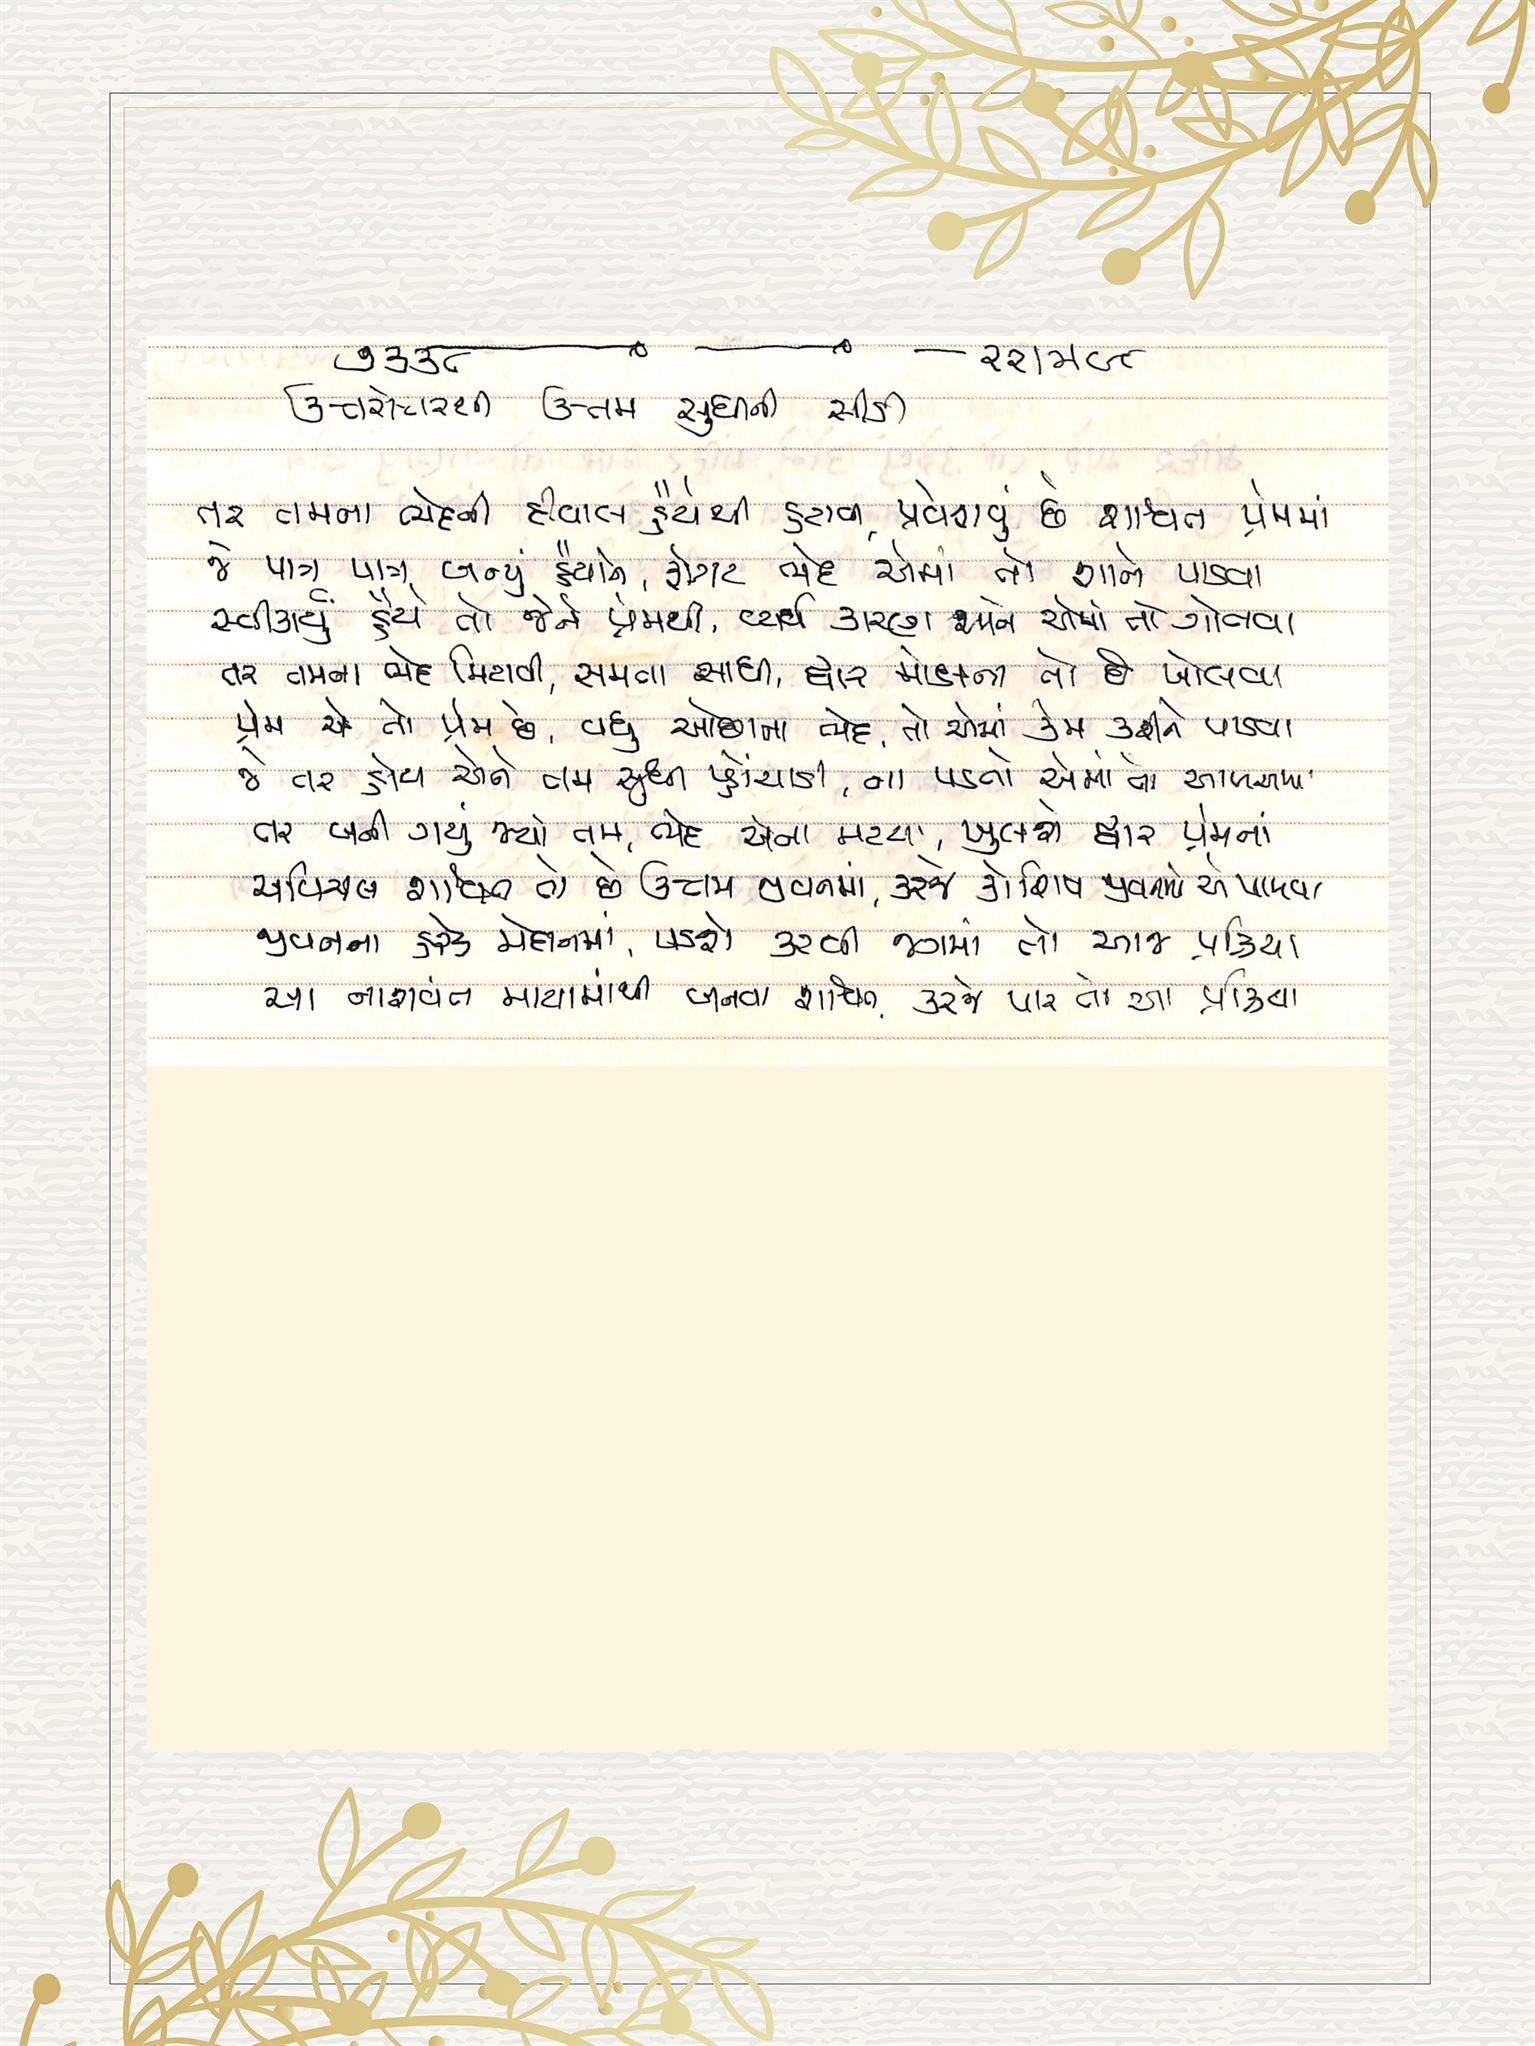 ૭૩૩૮
ઉત્તરોત્તરથી ઉત્તમ સુધીની સીડી
તર તમના ભેદની દીવાલ હૈયેથી હટાવી, પ્રવેશવું છે શાશ્વત પ્રેમમાં
જે પાત્ર પાત્ર બન્યું હૈયાને, ફોગટ ભેદ એમાં તો શાને પાડવા
સ્વીકાર્યું હૈયે તો જેને પ્રેમથી, વ્યર્થ કારણ શાને એમાં તો ગોતવા
તર તમના ભેદ મિટાવી, સમતા સાધી, દ્વાર મોક્ષના તો છે ખોલવા
પ્રેમ એ તો પ્રેમ છે, વધુ ઓછાના ભેદ, તો એમાં કેમ કરીને પાડવા
જે તર હોય એને તમ સુધી પહોંચાડી, ના પડતો એમાં તો
તર બની ગયું જ્યાં તમ, ભેદ એના મટયા, ખુલશે દ્વાર પ્રેમનાં
અવિચલ શાશ્વત તો છે ઉત્તમ જીવનમાં, કરજે કોશિષ જીવનમાં એ પામવા
જીવનના હરેક મેદાનમાં, પડશે કરવી જગમાં તો આજ પ્રક્રિયા
આ નાશવંત માયામાંથી બનવા શાશ્વત, કરજે પાર તો આ પ્રક્રિયા